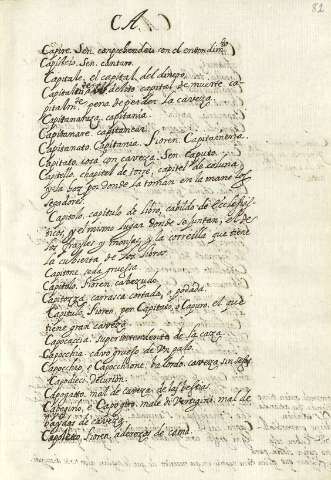 CA.
82
Capire. Sen. comprehender con el entendim.to
Capisteio. Sen. canturo.
Capitale, el capital del dinero.
Capitale delito capital de muerte ca-
pital pena de perder la caveza.
Capitanatura, capitania.
Capitanare. capitanear.
Capitanato. Capitania. Fioren. Capitaneria.
Capitato, cosa con caveza. Sen. Caputo.
Capitello, chapitel de torre, capitel de coluna
y la por donde la toman en la mano los
segadores.
Capitolo, capitulo de libro, cabildo de Eccleſiaſ-
ticos, y el mismo lugar donde se juntan, el de
los frayles y monjas, y la correilla que tiene
la cubierta de los libros.
Capitone, seda gruessa.
Capitoso. Fioren. cabezudo.
Capitozza, carrasca cortada, o podada.
Capituto, Fioren, por Capitato, o Caputo, el que
tiene gran caveza.
Capocaccia. superintendente de la caza.
Capocchia. cavo grueso de un palo.
Capocchio, y Capocchione. balordo. caveza sin seso.
Capodieci. decurión.
Capogatto, mal de caveza de las bestias.
Capogiro, e Capogirlo. male di vertigini, mal de
vaguidos de caveza.
Capoletto, fioren, adereços de cama.